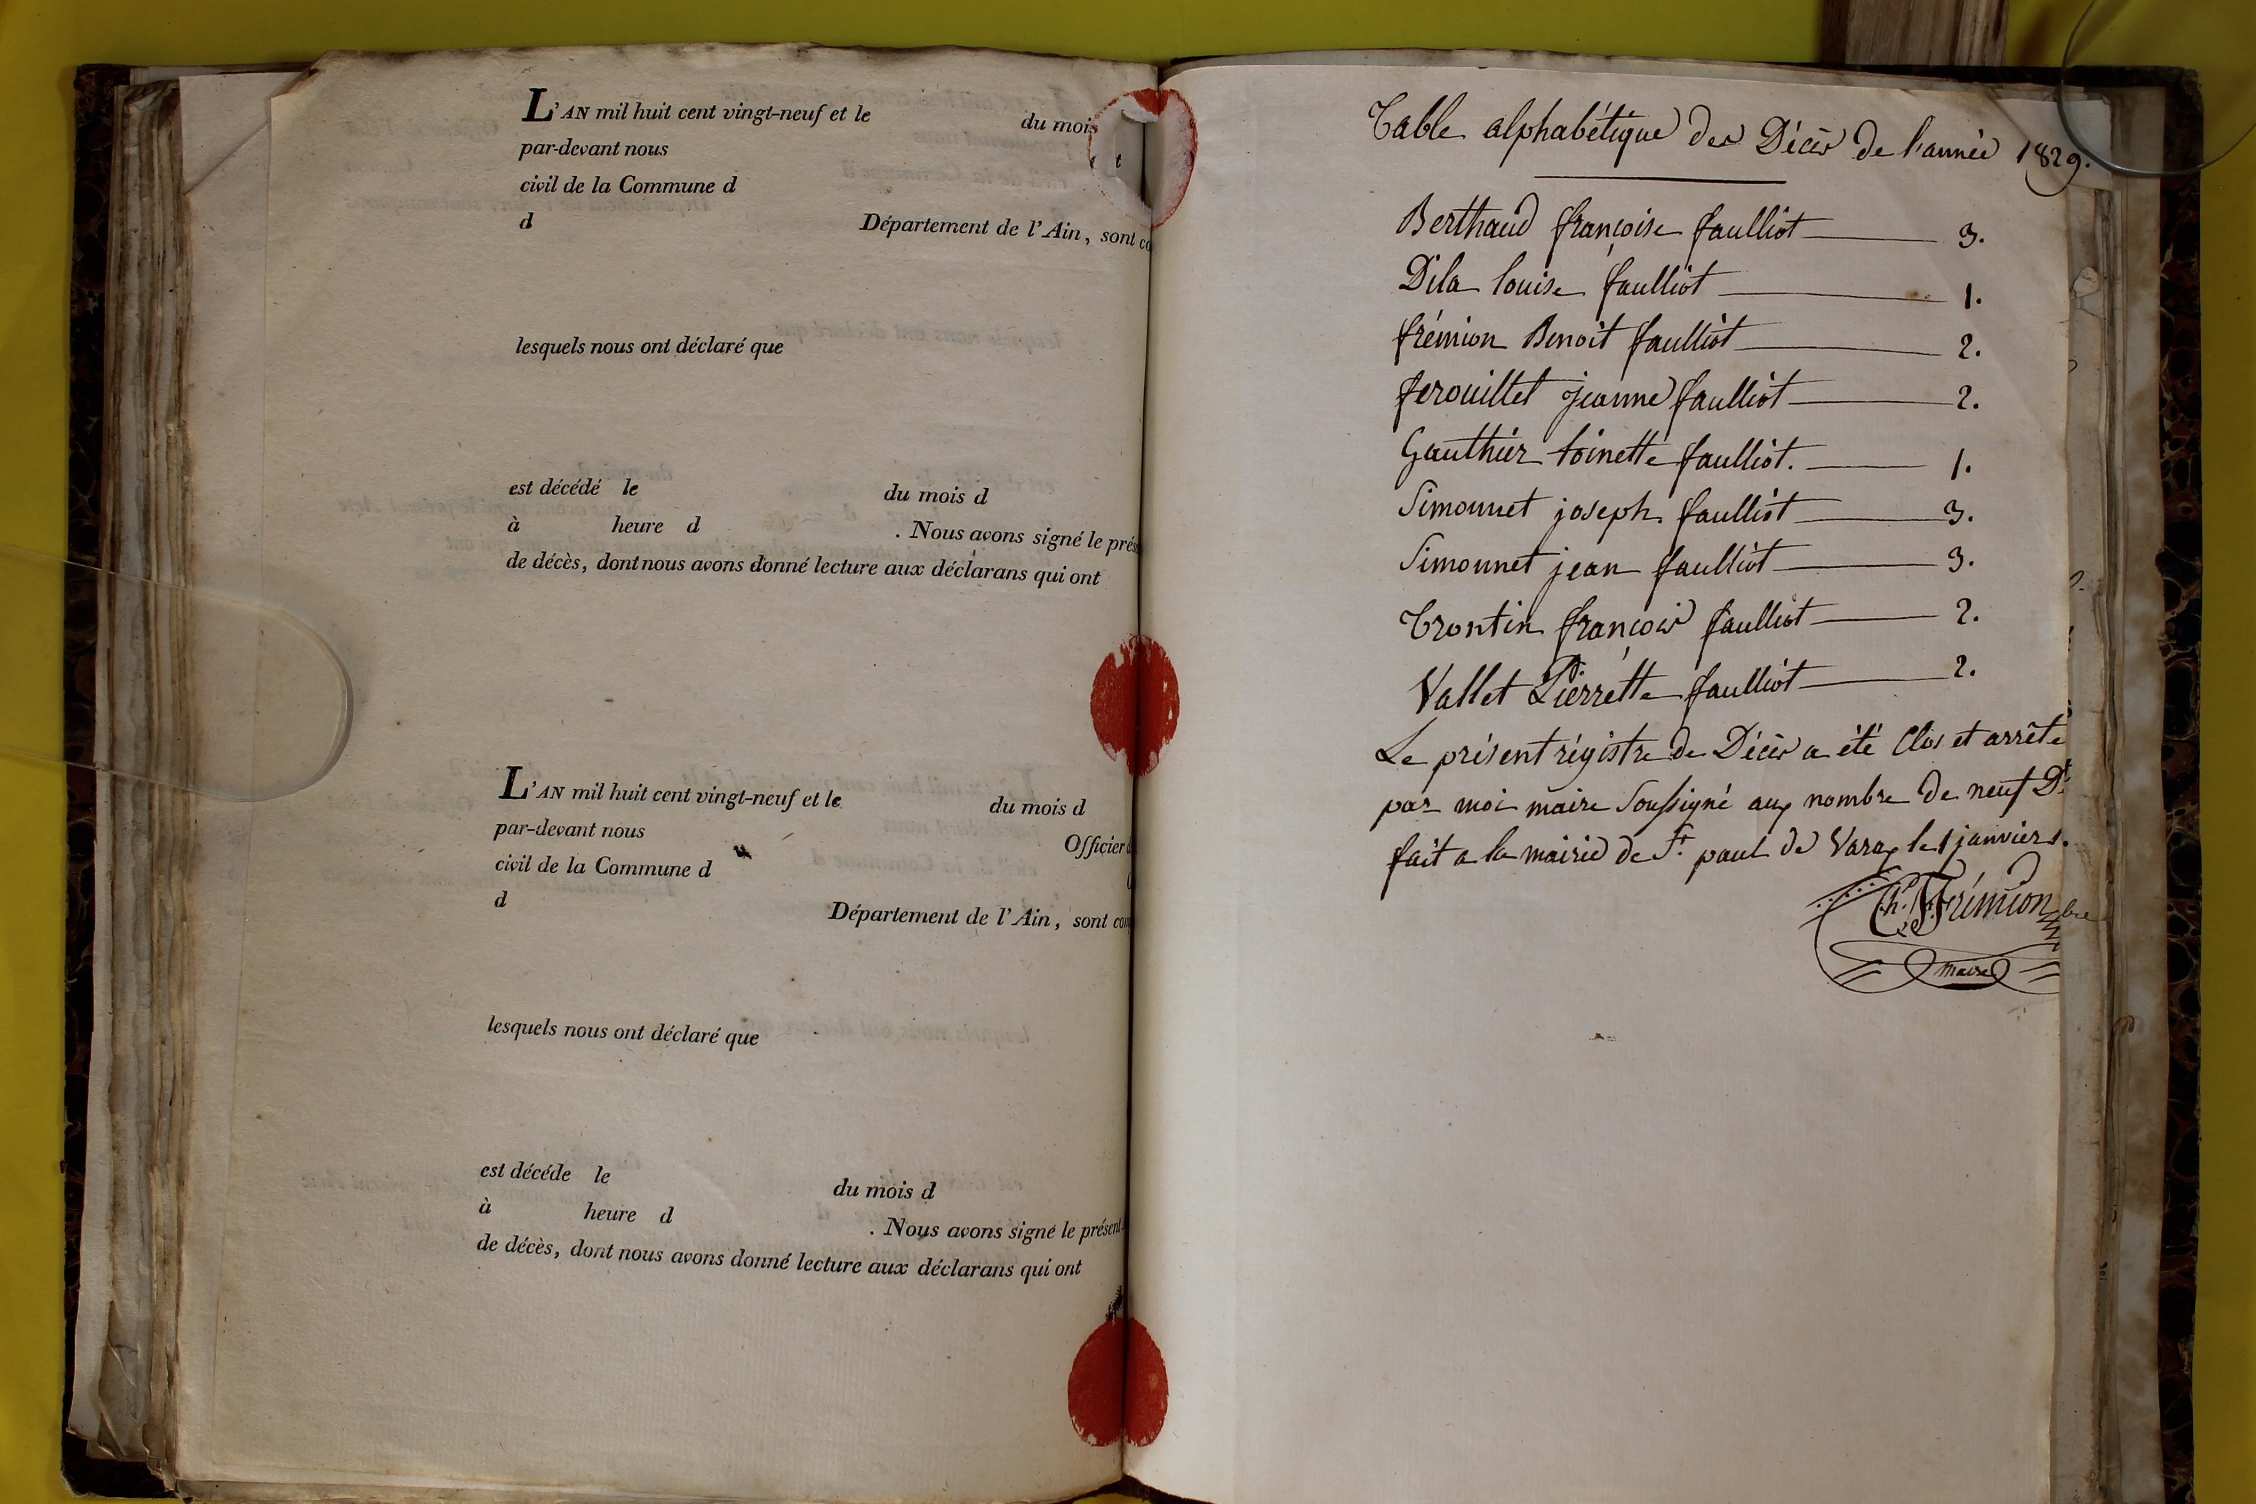 L'AN mil huit cent vingt-neuf et le du mois
par-devant nous
civil de la Commune d
d Département de l'Ain, sont co
lesquels nous ont déclaré que
est décédé le du mois d
à heure d . Nous avons signé le prés
de décès, dont nous avons donné lecture aux déclarans qui ont
L'AN mil huit cent vingt-neuf et le du mois d
par-devant nous Officier
civil de la Commune d
d Département de l'Ain, sont com
lesquels nous ont déclaré que
est décéde le du mois d
à heure d . Nous avons signé le présent
de décès, dont nous avons donné lecture aux déclarans qui ont
Table alphabétique des Décès de l'année 1829.
Berthaud françoise faulliot 3.
Dila louise faulliot 1.
frémion Benoit faulliot 2.
ferouillet jeanne faulliot 2.
Gauthier toinette faulliot. 1.
Simonnet joseph faulliot 3.
Simonnet jean faulliot 3.
Trontin françois faulliot 2.
Vallet Pierrette faulliot 2.
Le présent régistre de Décès a été Clos et arrêté
par moi maire Soussigné aux nombre de neuf D.
fait a la mairie de St. paul de Varax le 1 janvier 1.
Ch. Frémion
maire